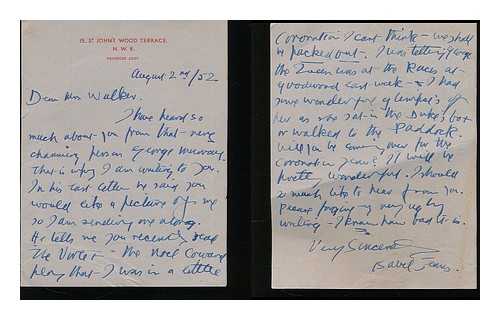 15, ST JOHN'S WOOD TERRACE,
N. W. 8.
PRIMROSE
August 2nd/52
Dear Mrs Walker.
I have heard so
much about you from that very
charming person George Murray.
That is why I am writing to you.
In his last letter he said you
would like a picture of me
so I am sending one along.
He tells me you recently read
The Vortex - the Noel Coward
play that I was in a little
Coronation I cant think - we shall
be packed out. I was telling George
the Queen was at the Races at
Goodwood last week & I had
some wonderful glimpses of
her as she sat in the Duke's box
or walked to the Paddock.
Will you be coming over for the
Coronation Year? It will be
pretty wonderful. I should
so much like to hear from you.
Please forgive my very ugly
writing - I know how bad it is.
Very Sincerely
Isabel Jeans.